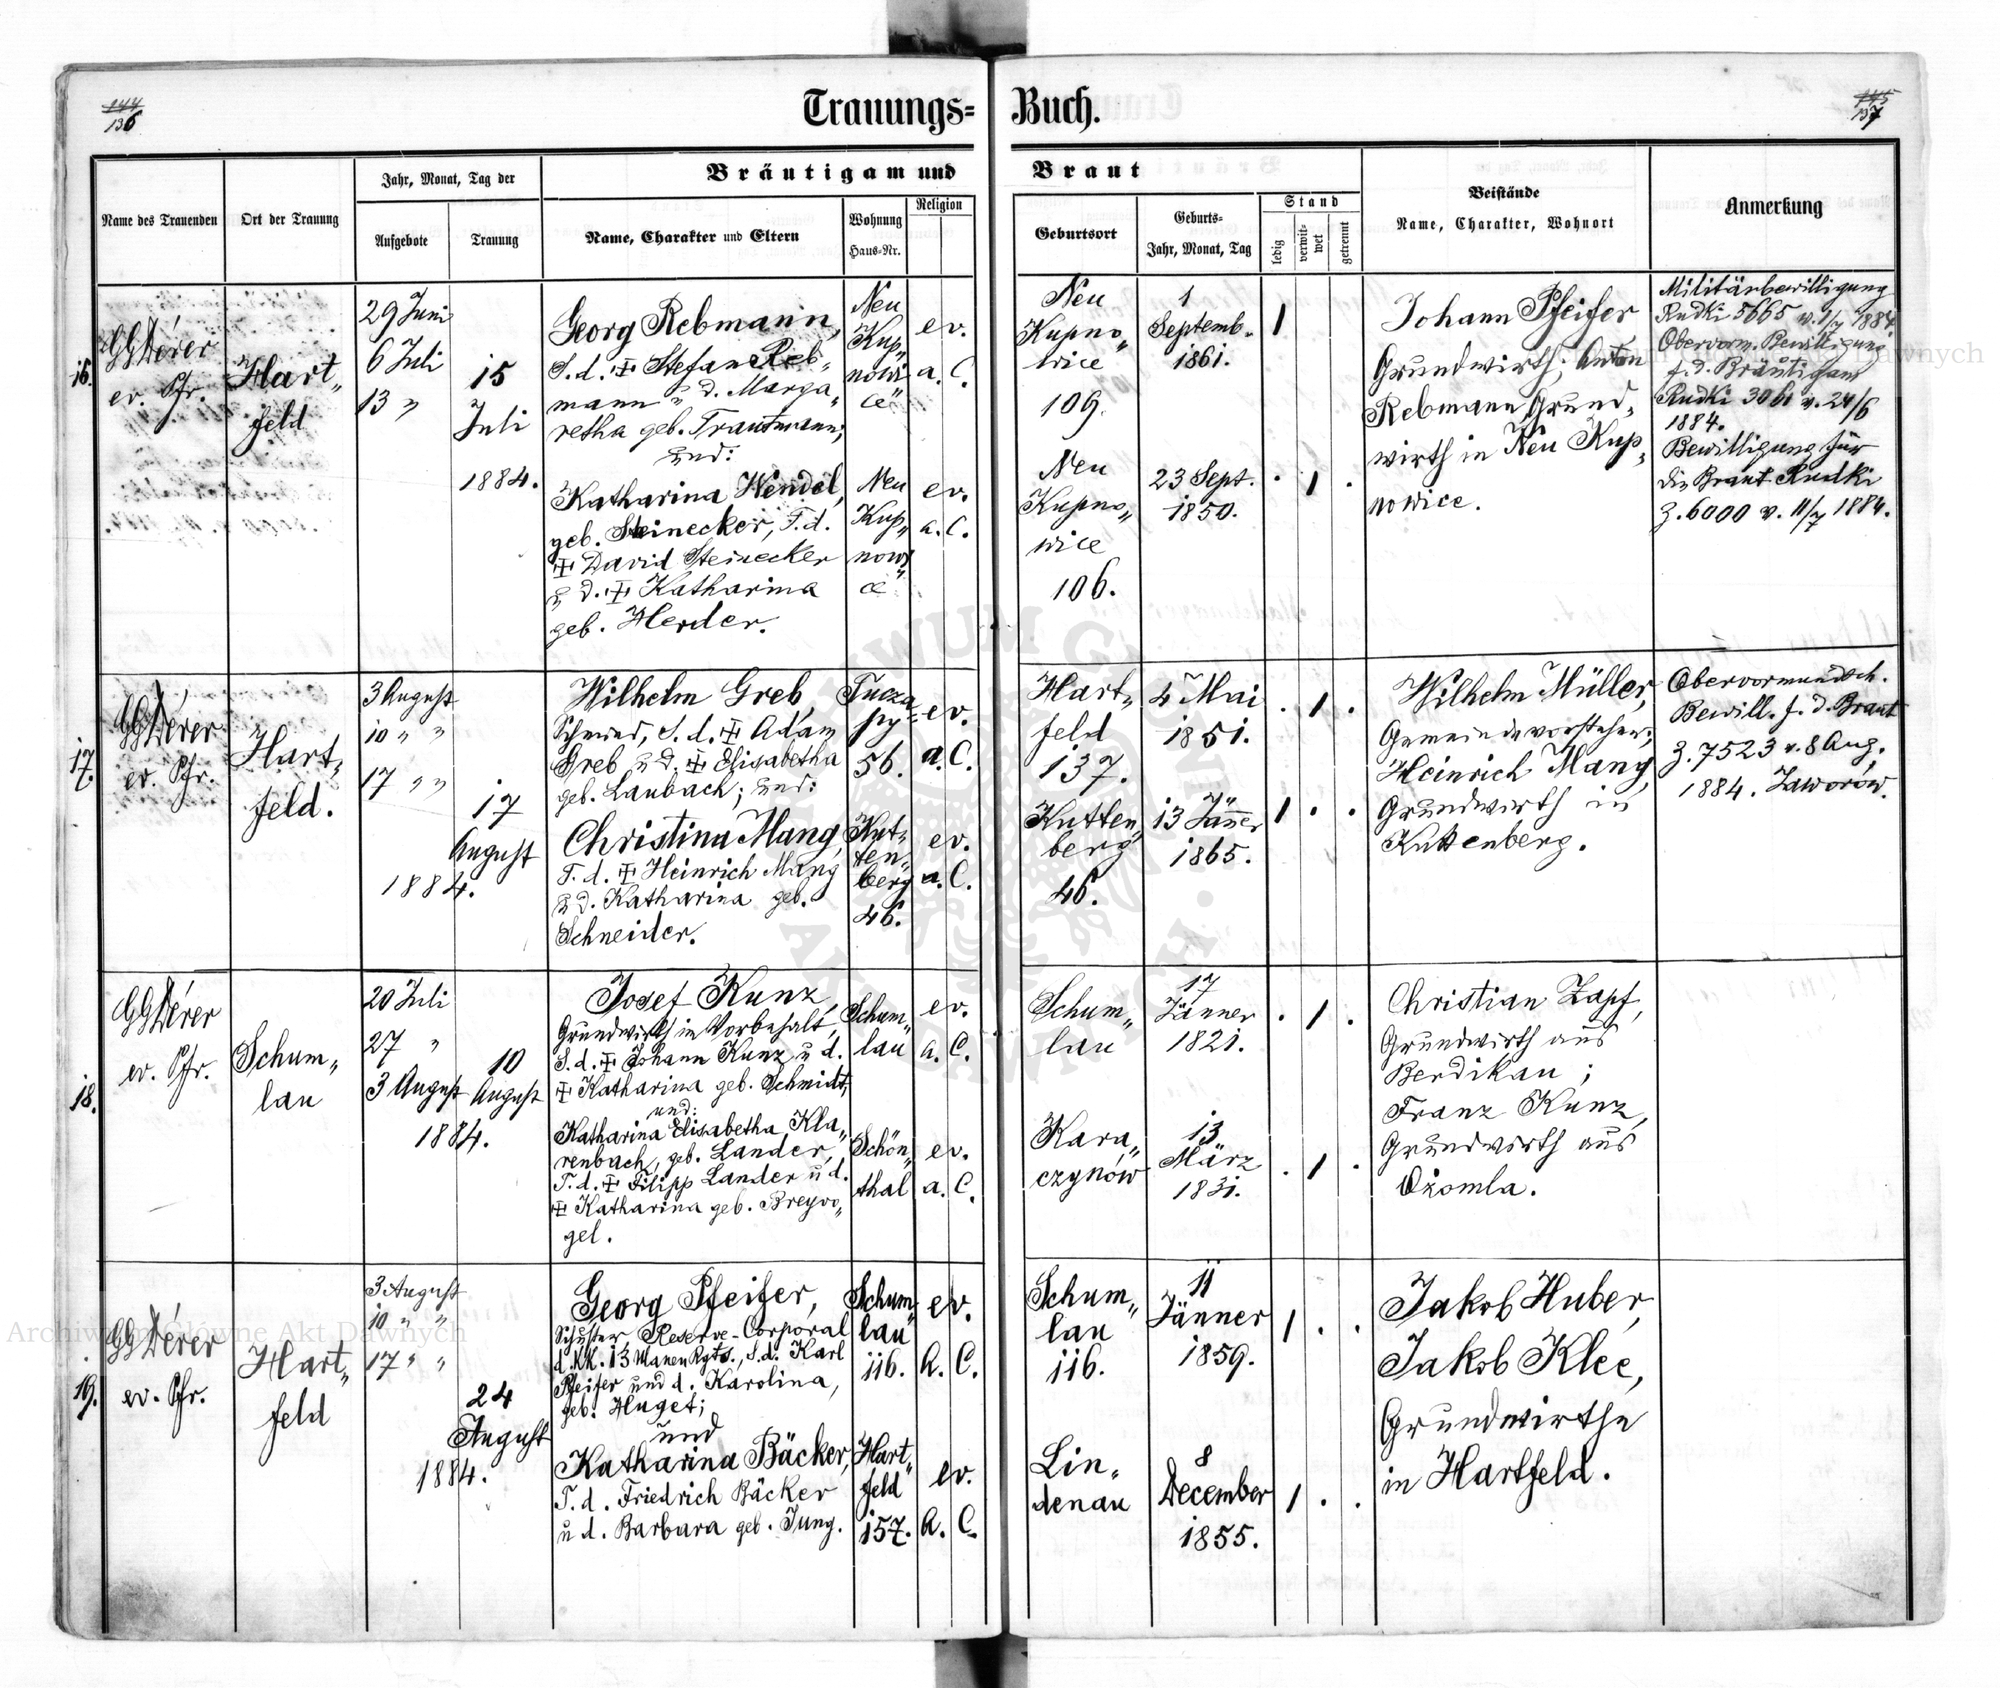 144
136
Trauungs=
Buch.
145
137
Name des Trauenden
Ort der Trauung
Jahr, Monat, Tag der
Aufgebote
Trauung
Bräutigam und
Name, Charakter und Eltern
Wohnung
Haus-Nr.
Religion
Braut
Geburtsort
Geburts=
Jahr, Monat, Tag
Stand
ledig
verwit=
wet
getrennt
Beistände
Name, Charakter, Wohnort
Anmerkung
16.
GGDérer
ev. Pfr.
Hart„
feld
29 Juni
6 Juli
13 „
15
Juli
1884.
Georg Rebmann,
S. d. ✠ Stefan Reb„
mann u d. Marga„
retha geb. Trautmann;
und:
Katharina Wendel,
geb. Steinecker, T. d.
✠ David Steinecker
u d. ✠ Katharina
geb. Herder.
Neu
Kup„
nowi„
ce
Neu
Kup„
nowi„
ce
ev.
a. C.
ev.
a. C.
Neu
Kupno„
wice
109.
Neu
Kupno„
wice
106.
1
Septemb.
1861.
23 Sept.
1850.
1
. 1 .
Johann Pfeifer
Grundwirth; Anton
Rebmann Grund„
wirth in Neu Kup„
nowice.
Militärbewilligung
Rudki 5665 v. 1/7 1884.
Obervorm. Bewilligung
f. d. Bräutigam
Rudki 3061 v. 24/6
1884.
Bewilligung für
die Braut Rudki
Z. 6000 v. 11/7 1884.
17.
GGDérer
ev. Pfr.
Hart„
feld.
3 August
10 „ „
17 „ „
17
August
1884.
Wilhelm Greb,
Schmied, S. d. ✠ Adam
Greb u d. ✠ Elisabetha
geb. Laubach; und:
Christina Mang,
T. d. ✠ Heinrich Mang
u d. Katharina geb.
Schneider.
Tucza„
py
56.
Kut„
ten„
berg
46.
ev.
a. C.
ev.
a. C.
Hart„
feld
137.
Kutten„
berg
46.
4 Mai
1851.
13 Jänner
1865.
. 1 .
1 . .
Wilhelm Müller,
Gemeindevorsteher;
Heinrich Mang
Grundwirth in
Kuttenberg.
Obervormundsch.
Bewill. f. d. Braut
Z. 7523 v. 8 Aug.
1884. Jaworów.
18.
GGDérer
ev. Pfr.
Schum„
lau
20 Juli
27 „
3 August
10
August
1884.
Josef Kunz,
Grundwirth in Vorbehalt,
S. d. ✠ Johann Kunz u d.
✠ Katharina geb. Schmidt,
und:
Katharina Elisabetha Kla„
renbach, geb. Lander,
T. d. ✠ Filipp Lander u d.
✠ Katharina geb. Breyvo„
gel.
Schum„
lau
Schön„
thal
ev.
a. C.
ev.
a. C.
Schum„
lau
Kara„
czynów
17
Jänner
1821.
13
März
1831.
. 1 .
. 1 .
Christian Zapf,
Grundwirth aus
Berdikau;
Franz Kunz,
Grundwirth aus
Ożomla.
19.
GGDérer
ev. Pfr.
Hart„
feld
3 August
10 „ „
17 „ „
24
August
1884.
Georg Pfeifer,
Schuster, Reserve-Corporal
d. KK. 13 Ulanen Rgts., S. d. Karl
Pfeifer und d. Karolina,
geb. Huget;
und
Katharina Bäcker,
T. d. Friedrich Bäcker
u d. Barbara geb. Jung.
Schum„
lau
116.
Hart„
feld
157.
ev.
A. C.
ev.
A. C.
Schum„
lau
116.
Lin„
denau
11
Jänner
1859.
8
December
1855.
1 . .
1 . .
Jakob Huber,
Jakob Klee,
Grundwirthe
in Hartfeld.
Archiwum Główne Akt Dawnych